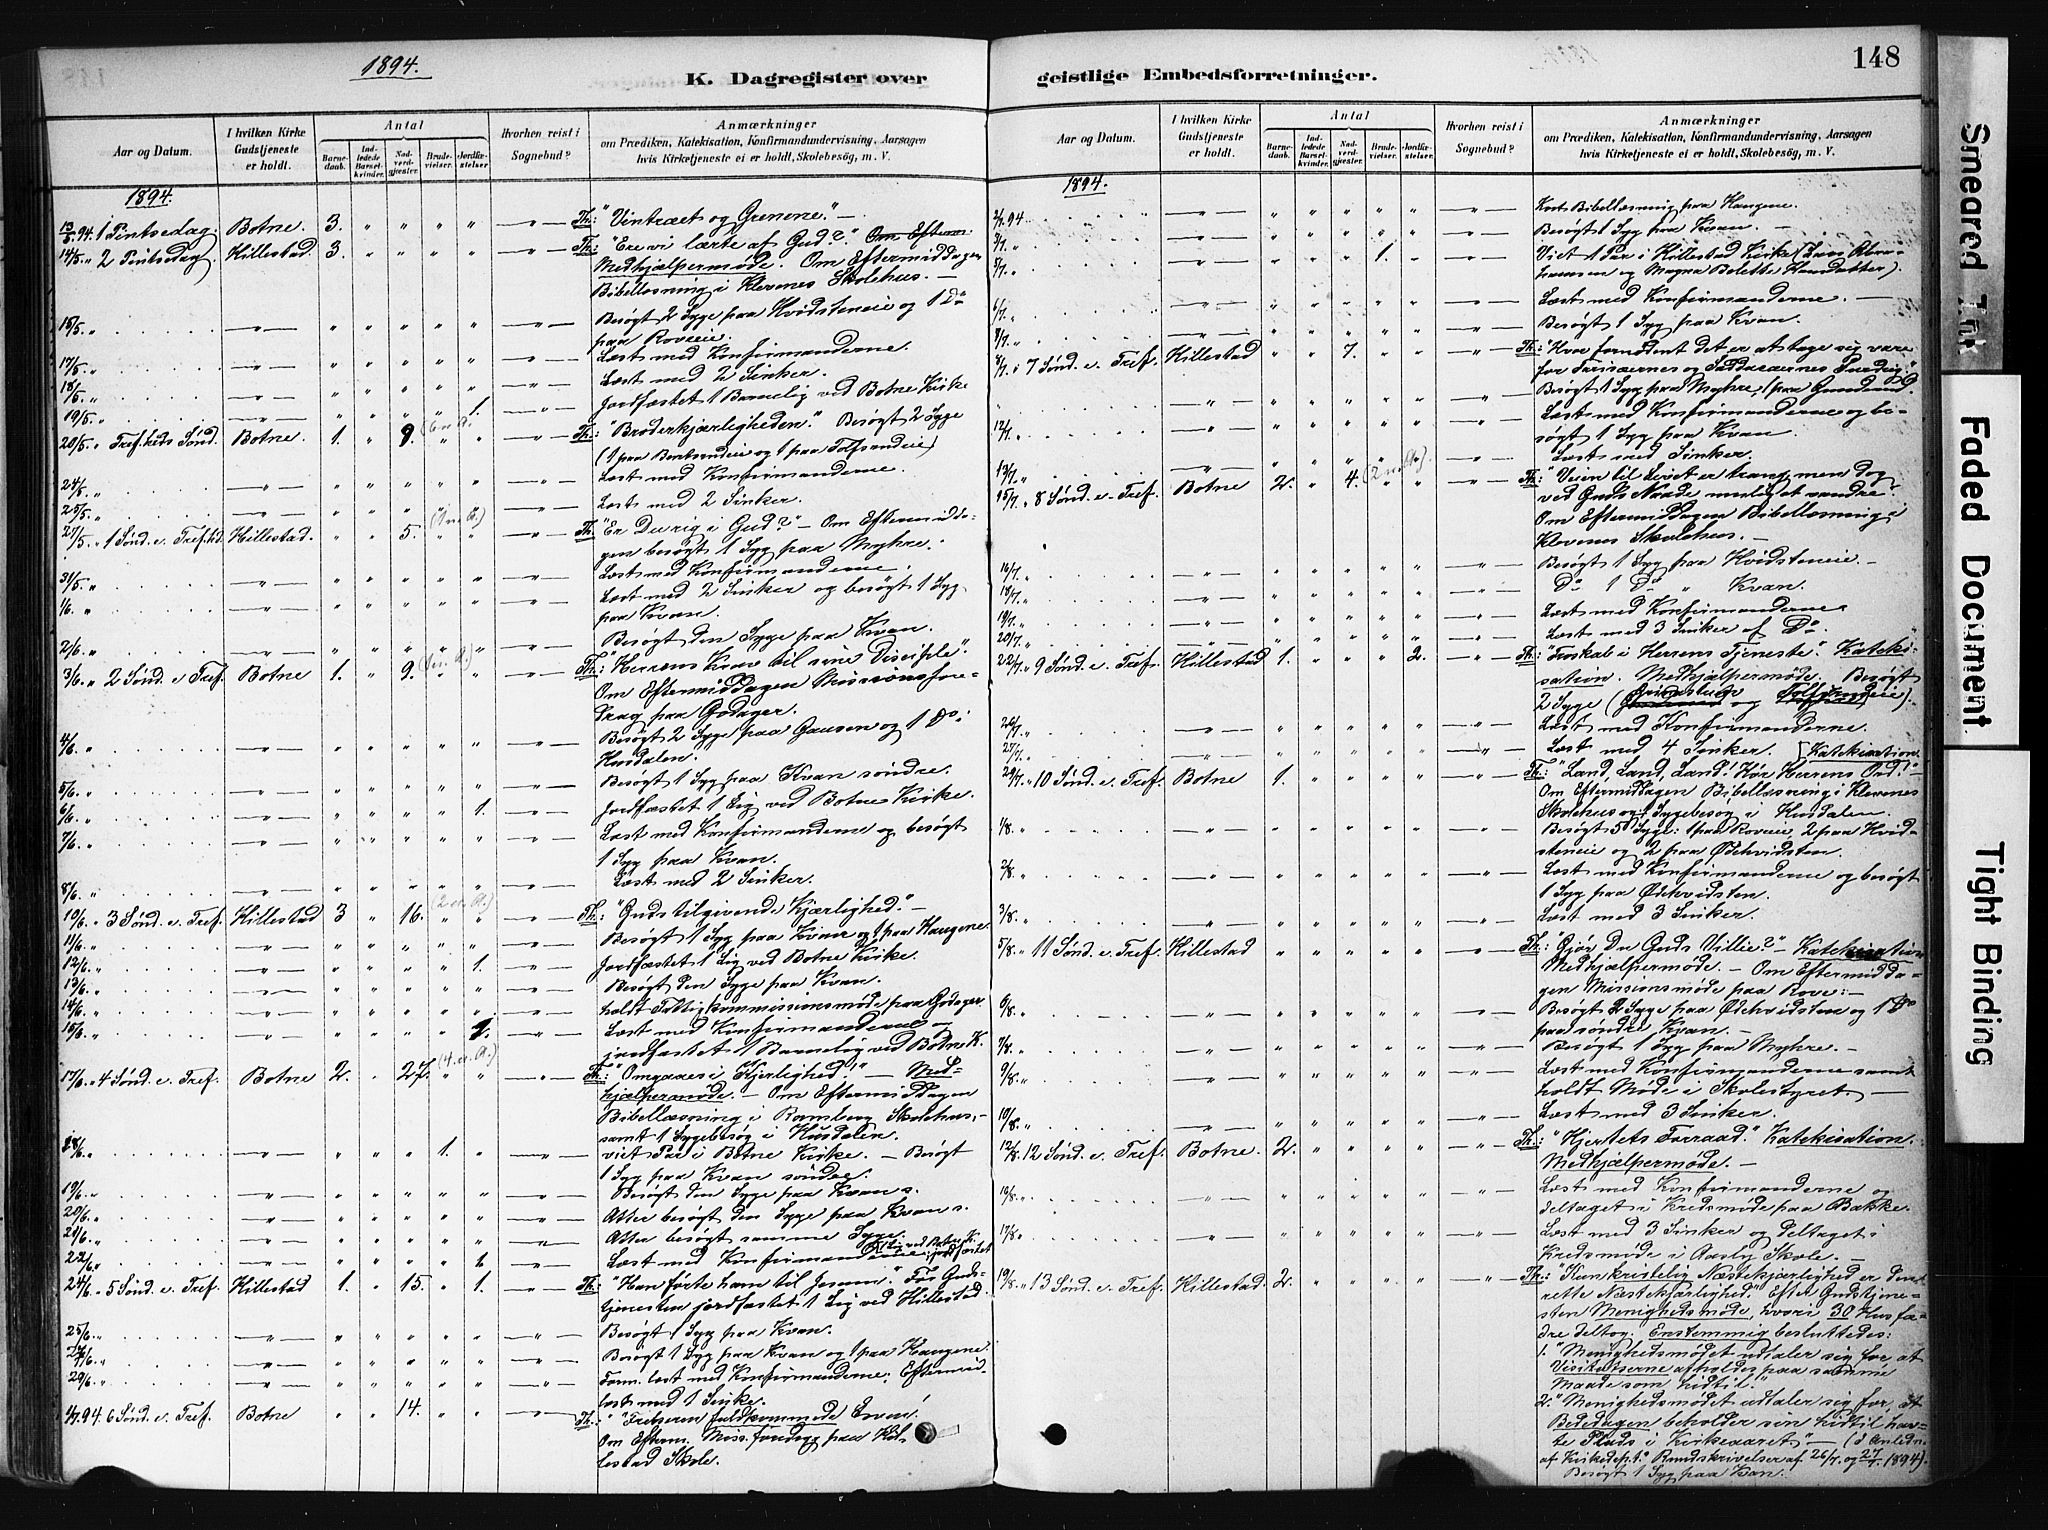 148
1894.
K. Dagregister over
geistlige Embedsforretninger.
Aar og Datum.
I hvilken Kirke Gudstjeneste er holdt.
Antal
Barnedaab.
Indledede Barselkvinder.
Nadverdgjæster.
Brudevielser.
Jordfæstelser.
Hvorhen reist i Sognebud?
Anmærkninger
om Prædiken, Katekisation, Konfirmandundervisning, Aarsagen
hvis Kirketjeneste ei er holdt, Skolebesøg, m. V.
1894.
13/5 94. 1 Pintsedag. Botne. 3. " " " " Th.: "Vintræet og Grenene." —
14/5 " 2 Pintsdag. Hillestad. 3. " " " " Th.: "Ere vi lærte af Gud?" Om Efterm.
Medhjælpermøde. Om Eftermiddagen
Bibellæsning i Klevenes Skolehus. —
15/5 " Besøgt 2 Syge paa Hvidsteneie og 1 Do
paa Roveeie.
17/5 " Læst med Konfirmanderne.
18/5 " Læst med 2 Sinker.
19/5 " 1. Jordfæstet 1 Barnelig ved Botne Kirke
20/5 " Tref.heds Sønd. Botne. 1. " 9. " " Th.: "Broderkjærligheden." Besøgt 2 Syge
24/5 " Læst med Konfirmanderne.
25/5 " Læst med 2 Sinker.
27/5 " 1 Sønd. e. Tref.hd. Hillestad. " " 5. " " Th.: "Er Du rig i Gud?" — Om Eftermidda-
gen besøgt 1 Syg paa Myhre.
31/5 " Læst med Konfirmanderne.
1/6 " Læst med 2 Sinker og besøgt 1 Syg
paa Kvan.
2/6 " Besøgt den Syge paa Kvan.
3/6 " 2 Sønd. e. Tref. Botne. 1. " 9. " " Th.: "Herrens Krav til sine Disciple."
Om Eftermiddagen Missionsfore-
drag paa Godager.
4/6 " Besøgt 2 Syge paa Gausen og 1 Do i
Husdalen.
5/6 " Besøgt 1 Syg paa Kvan søndre.
6/6 " 1. Jordfæstet 1 Lig ved Botne Kirke.
7/6 " Læst med Konfirmanderne og besøgt
1 Syg paa Kvan.
8/6 " Læst med 2 Sinker.
10/6 " 3 Sønd. e. Tref. Hillestad 3 " 16. " " Th.: "Guds tilgivende Kjærlighed." —
11/6 " Besøgt 1 Syg paa Kvan og 1 paa Haugene.
12/6 " 1. Jordfæstet 1 Lig ved Botne Kirke.
13/6 " Besøgt den Syge paa Kvan.
14/6 " holdt Fattigkommissionsmøde paa Godager.
15/6 " 1. Læst med Konfirmanderne —
jordfæstet 1 Barnelig ved Botne K.
17/6 " 4 Sønd. e. Tref. Botne 2. " 27. " " Th.: "Omgaaes i Kjærlighed!" — Med-
hjælpermøde. — Om Eftermiddagen
Bibellæsning i Ramberg Skolehus, —
samt 1 Sygebesøg i Husdalen.
18/6 " 1. viet 1 Par i Botne Kirke. — Besøgt
1 Syg paa Kvan søndre.
19/6 " Besøgt den Syge paa Kvan s.
20/6 " Atter besøgt den Syge paa Kvan s.
21/6 " Atter besøgt samme Syge.
22/6 " Læst med Konfirmanderne
24/6 " 5 Sønd. e. Tref. Hillestad 1. " 15. " 1. Th.: "Han førte ham til Jesum." Før Guds-
tjenesten jordfæstet 1 Lig ved Hillestad.
25/6 " Besøgt 1 Syg paa Kvan.
27/6 " Besøgt 1 Syg paa Kvan og 1 paa Haugene.
29/6 " Form. læst med Konfirmanderne; Eftermid.
læst med 1 Sinke.
1/7 94. 6 Sønd. e. Tref. Botne " " 14. " " Th.: "Frelseren fuldkommede Loven."
Om Efterm. Miss.foredrag paa Hil-
lestad Skole.
Aar og Datum.
I hvilken Kirke Gudstjeneste er holdt.
Antal
Barnedaab.
Indledede Barselkvinder.
Nadverdgjæster.
Brudevielser.
Jordfæstelser.
Hvorhen reist i Sognebud?
Anmærkninger
om Prædiken, Katekisation, Konfirmandundervisning, Aarsagen
hvis Kirketjeneste ei er holdt, Skolebesøg, m. V.
1894.
2/7 94. Kort Bibellæsning paa Haugene.
3/7 " Besøgt 1 Syg paa Kvan.
5/7 " 1. Viet 1 Par i Hillestad Kirke (Lars Abra-
hamsen og Magna Bolette Hansdatter).
6/7 " Læst med Konfirmanderne. —
Besøgt 1 Syg paa Kvan.
8/7 " 7 Sønd. e. Tref. Hillestad " " 7. " " Th.: "Hvor fornødent det er at tage sig vare
for Farisæernes og Sadducæernes Surdeig."
Besøgt 1 Syg paa Myhre,
12/7 " Læst med Konfirmanderne og be-
søgt 1 Syg paa Kvan.
13/7 " Læst med Sinker.
15/7 " 8 Sønd. e. Tref. Botne 2. " 4. " " Th.: "Veien til Livet er trang, men dog
ved Guds Naade mulig at vandre."
Om Eftermiddagen Bibellæsning i
Klevenes Skolehus. —
16/7 " Besøgt 1 Syg paa Hvidsteneie. —
18/7 " Do 1 Do " Kvan.
19/7 " Læst med Konfirmanderne
20/7 " Læst med 3 Sinker af Do.
22/7 " 9 Sønd. e. Tref. Hillestad 1. " " " 2. Th.: "Troskab i Herrens Tjeneste." Kateki-
sation. Medhjælpermøde. Besøgt
2 Syge
26/7 " Læst med Konfirmanderne.
27/7 " Læst med 4 Sinker. Katekisation.
29/7 " 10 Sønd. e. Tref. Botne 1. " " " " Th.: "Land, Land, Land! Hør Herrens Ord!" —
Om Eftermiddagen Bibellæsning i Klevenes
Skolehus og 1 Sygebesøg i Husdalen.
1/8 " Besøgt 5 Syge: 1 paa Roveeie, 2 paa Hvid-
steneie og 2 paa Ødehvidsten.
2/8 " Læst med Konfirmanderne og besøgt
1 Syg paa Ødehvidsten.
3/8 " Læst med 3 Sinker.
5/8 " 11 Sønd. e. Tref. Hillestad Th.: "Gjør Du Guds Villie?" — Katekisation
Medhjælpermøde. — Om Eftermidda-
gen Missionsmøde paa Rove: —
6/8 " Besøgt 2 Syge paa Ødehvidsten og 1 Do
paa søndre Kvan. —
7/8 " Besøgt 1 Syg paa Myhre. —
9/8 " Læst med Konfirmanderne samt
holdt Møde i Skolestyret. —
10/8 " Læst med 3 Sinker.
12/8 " 12 Sønd. e. Tref. Botne. 2. " " " " Th.: "Hjertets Forraad." Katekisation.
Medhjælpermøde. —
16/8 " Læst med Konfirmanderne og
deltaget i Kredsmøde paa Bakke.
17/8 " Læst med 3 Sinker og deltaget i
Kredsmøde i Aasly Skole. —
19/8 " 13 Sønd. e. Tref. Hillestad 2. " " " " Th.: "Kun kristelig Næstekjærlighed er den
rette Næstekjærlighed." Efter Gudstjene-
sten Menighedsmøde, hvori 30 Husfæ-
dre deltog. Enstemmig besluttedes:
1. "Menighedsmødet udtaler sig for, at
Visitatserne afholdes paa samme
Maade som hidtil."
2. "Menighedsmødet udtaler sig for, at
Bededagen beholder sin hidtil hav-
te Plads i Kirkeaaret" — (I Anledn.
af Kirkedept.'s Rundskrivelser af 26/4 og 27/7 1894).
Besøgt 1 Syg paa Kvan.
Smeared Ink
Faded Document
Tight Binding